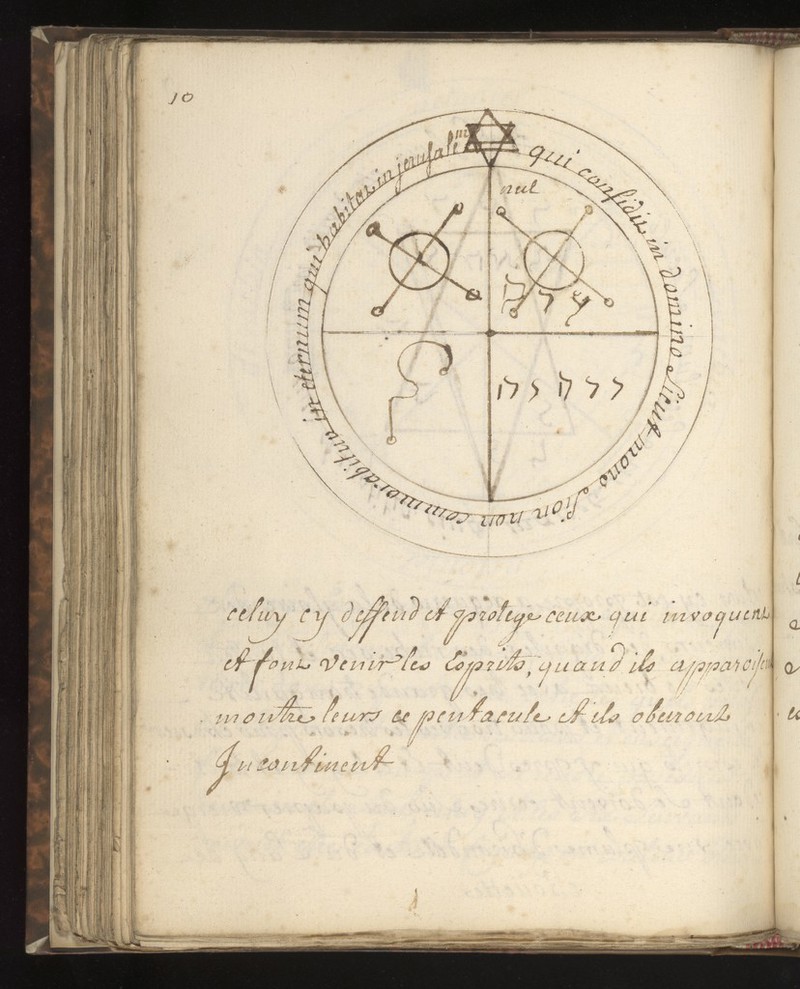 10
qui confidit in domino sicut mons sion non commorabitur in eternum qui habitat in jerusalem
celuy cy deffend et protege ceux qui invoquent
et font venir les Esprits, quand ils
montre leurs ce pentacule et ils obeiront
Incontinent